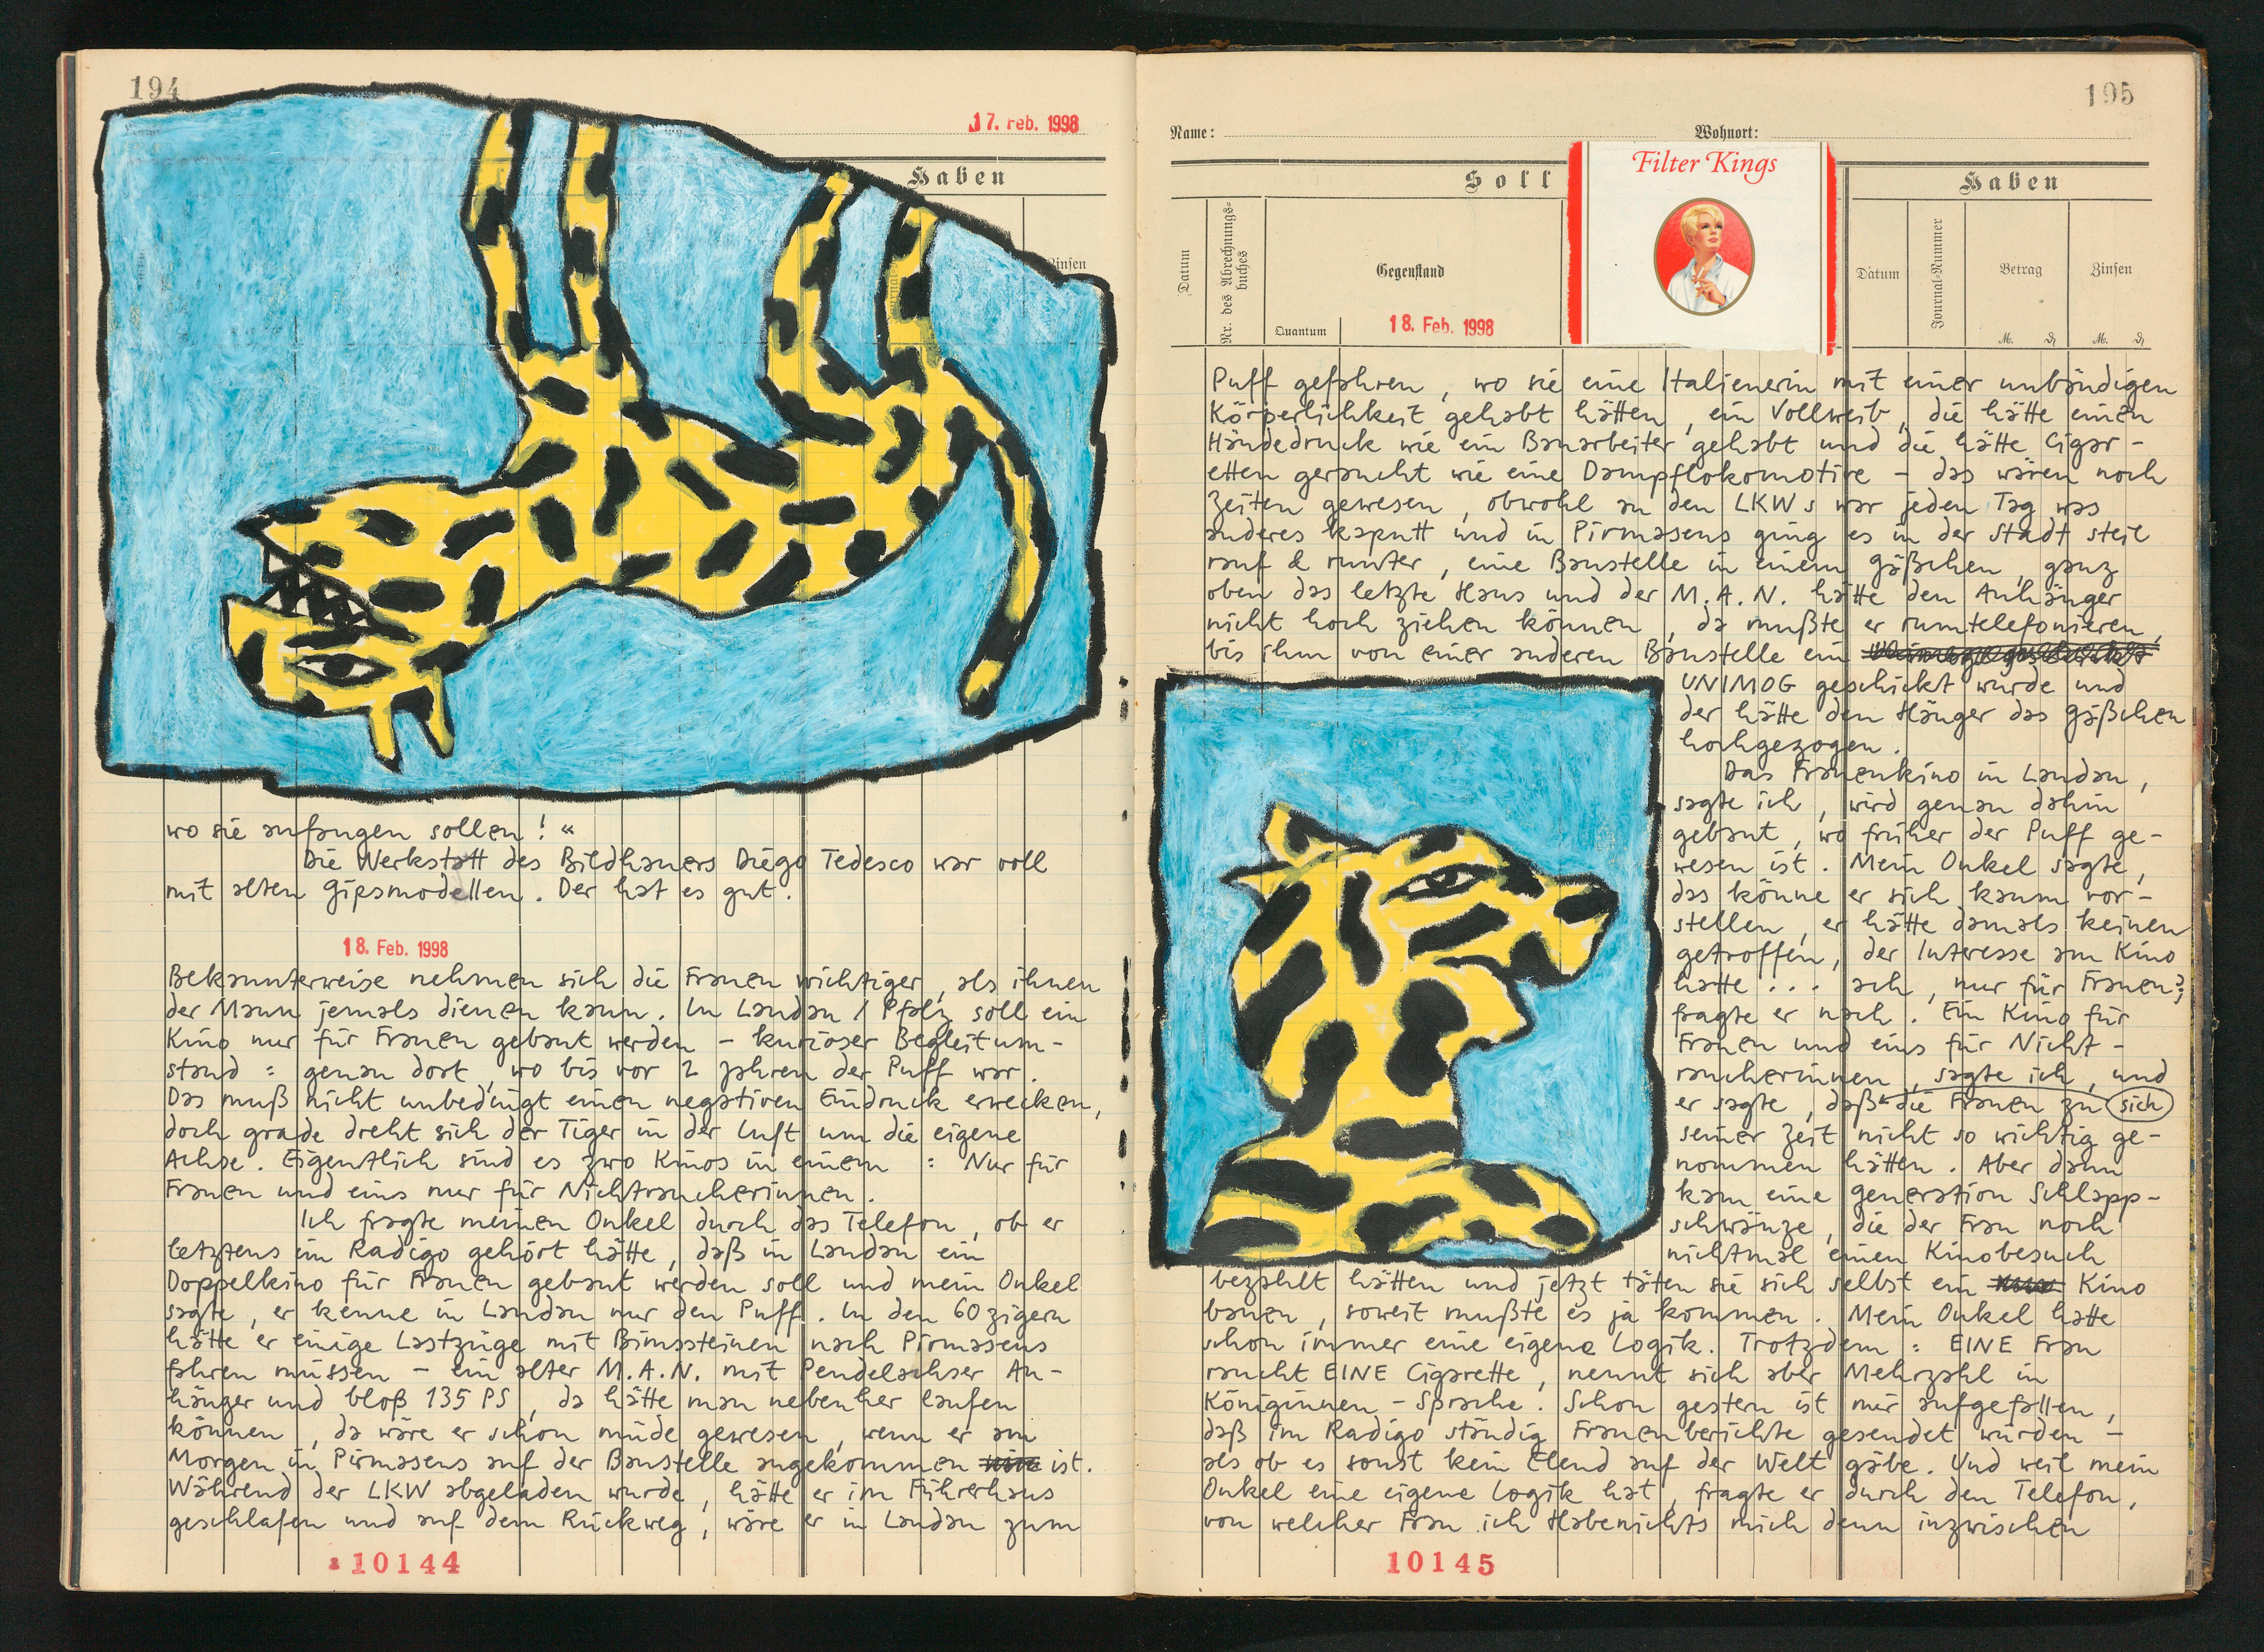 194
17. Feb. 1998
Haben
Zinsen
wo sie anfangen sollen! «
Die Werkstatt des Bildhauers Diego Tedesco war voll
mit alten Gipsmodellen. Der hat es gut.
18. Feb. 1998
Bekannterweise nehmen sich die Frauen wichtiger, als ihnen
der Mann jemals dienen kann. In Landau / Pfalz soll ein
Kino nur für Frauen gebaut werden – kurioser Begleitum-
stand : genau dort, wo bis vor 2 Jahren der Puff war.
Das muß nicht unbedingt einen negativen Eindruck erwecken,
doch grade dreht sich der Tiger in der Luft um die eigene
Achse. Eigentlich sind es zwo Kinos in einem : Nur für
Frauen und eins nur für Nichtraucherinnen.
Ich fragte meinen Onkel durch das Telefon, ob er
letztens im Radigo gehört hätte, daß in Landau ein
Doppelkino für Frauen gebaut werden soll und mein Onkel
sagte, er kenne in Landau nur den Puff. In den 60zigern
hätte er einige Lastzüge mit Bimssteinen nach Pirmasens
fahren müssen – ein alter M.A.N. mit Pendelachser An-
hänger und bloß 135 PS, da hätte man nebenher laufen
können, da wäre er schon müde gewesen, wenn er am
Morgen in Pirmasens auf der Baustelle angekommen ist.
Während der LKW abgeladen wurde, hätte er im Führerhaus
geschlafen und auf dem Rückweg, wäre er in Landau zum
10144
195
Name: Wohnort:
Soll
Haben
Filter Kings
Datum
Nr. des Abrechnungs-
buches
Gegenstand
Quantum
18. Feb. 1998
Datum
Journal-Nummer
Betrag
Zinsen
M. M.
Puff gefahren, wo sie eine Italienerin mit einer unbändigen
Körperlichkeit gehabt hätten, ein Vollweib, die hätte einen
Händedruck wie ein Bauarbeiter gehabt und die hätte Cigar-
etten geraucht wie eine Dampflokomotive – das wären noch
Zeiten gewesen, obwohl an den LKWs war jeden Tag was
anderes kaputt und in Pirmasens ging es in der Stadt steil
rauf & runter, eine Baustelle in einem Gäßchen, ganz
oben das letzte Haus und der M.A.N. hätte den Anhänger
nicht hoch ziehen können, da mußte er rumtelefonieren,
bis ihm von einer anderen Baustelle ein
UNIMOG geschickt wurde und
der hätte den Hänger das Gäßchen
hochgezogen.
Das Frauenkino in Landau,
sagte ich, wird genau dahin
gebaut, wo früher der Puff ge-
wesen ist. Mein Onkel sagte,
das könne er sich kaum vor-
stellen, er hätte damals keinen
getroffen, der Interesse am Kino
hatte ... ach, nur für Frauen?,
fragte er nach. Ein Kino für
Frauen und eins für Nicht-
raucherinnen, sagte ich, und
er sagte, daß die Frauen zu sich
seiner Zeit nicht so wichtig ge-
nommen hätten. Aber dann
kam eine Generation Schlapp-
schwänze, die der Frau noch
nichtmal einen Kinobesuch
bezahlt hätten und jetzt täten sie sich selbst ein Kino
bauen, soweit mußte es ja kommen. Mein Onkel hatte
schon immer eine eigene Logik. Trotzdem : EINE Frau
raucht EINE Cigarette, nennt sich aber Mehrzahl in
Königinnen – Sprache. Schon gestern ist mir aufgefallen,
daß im Radigo ständig Frauenberichte gesendet wurden –
als ob es sonst kein Elend auf der Welt gäbe. Und weil mein
Onkel eine eigene Logik hat, fragte er durch den Telefon,
von welcher Frau ich Habenichts mich denn inzwischen
10145